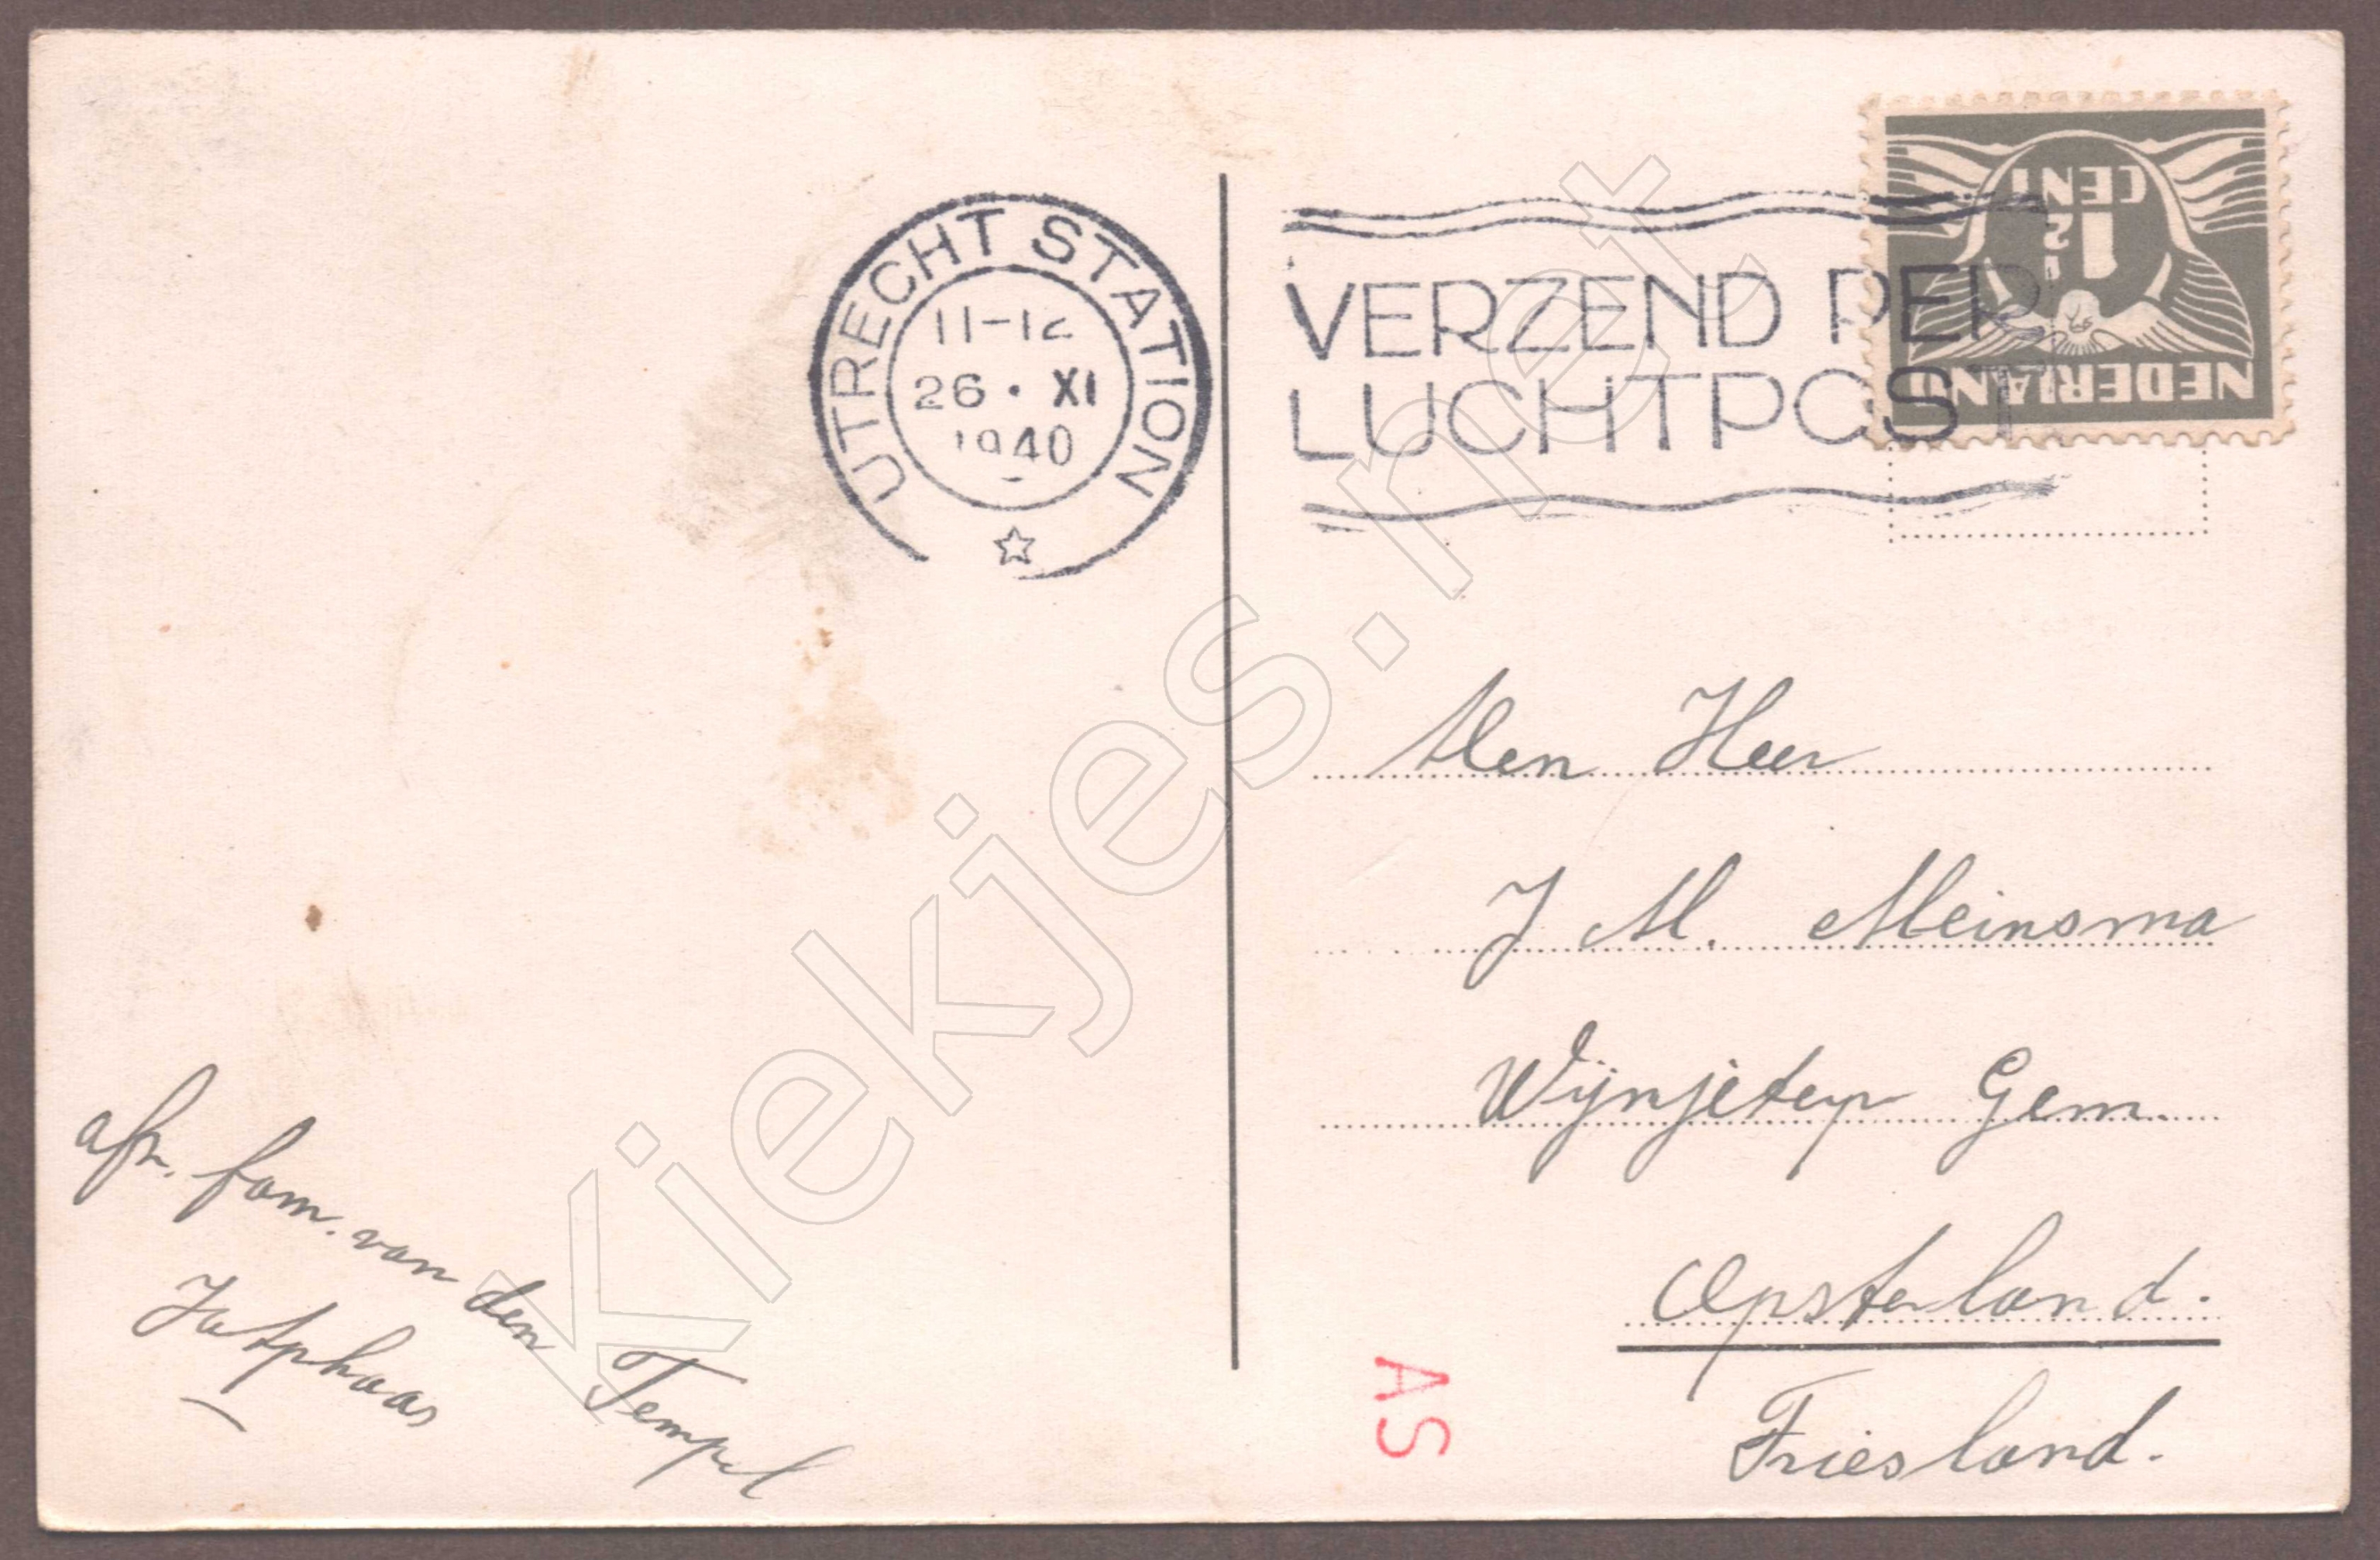 UTRECHT STATION
11-12
26 · XI
1940
VERZEND PER
LUCHTPOST
NEDERLAND
1½
CENT
Den Heer
J M. Meinsma
Wijnjeterp Gem.
Opsterland.
Friesland.
afz. fam. van den Tempel
Jutphaas
AS
Kiekjes.net